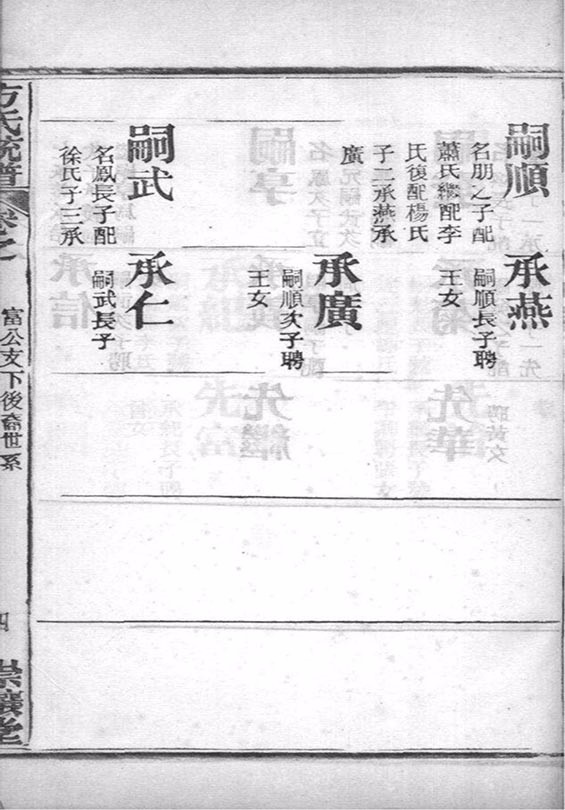 嗣順
名朋之子配
蕭氏繼配李
氏復配楊氏
子二承燕承
廣
承燕
嗣順長子聘
王女
承廣
嗣順次子聘
王女
嗣武
名鳳長子配
徐氏子三承
承仁
嗣武長子
方氏統譜
卷之
富公支下後裔世系
四